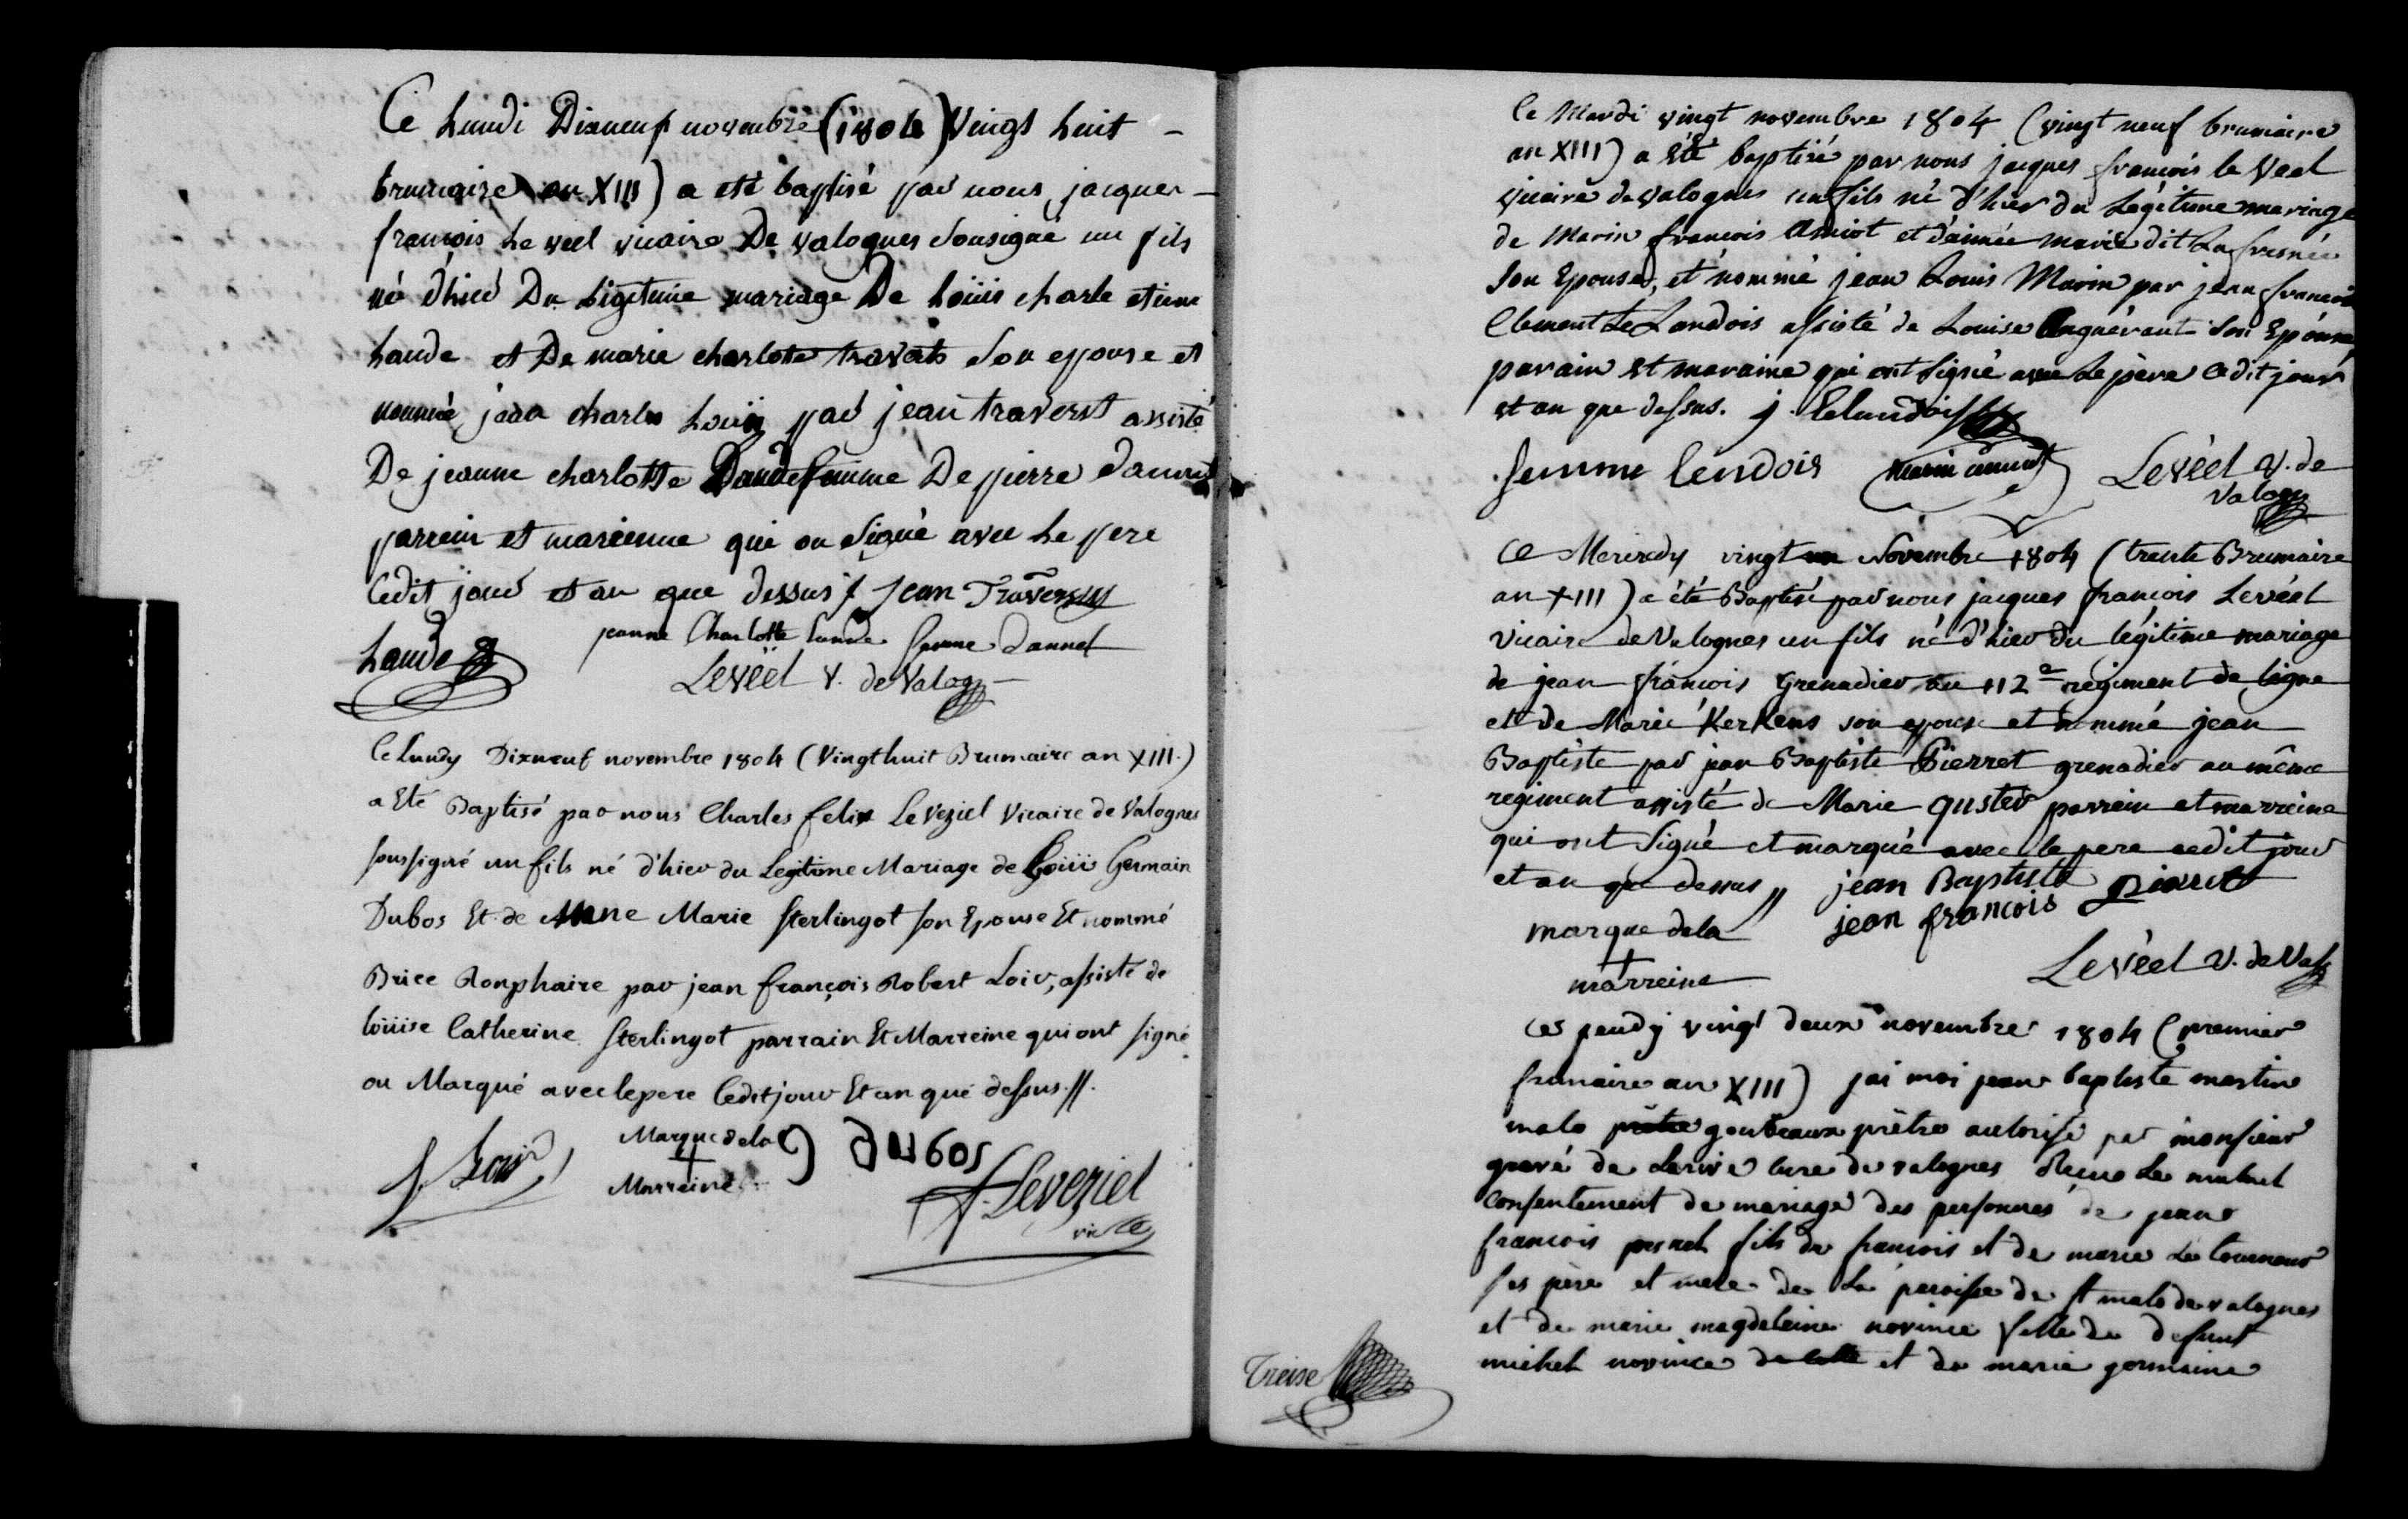 Ce Lundi Dixneuf novembre (1804) Vingt huit -
brumaire an XIII) a eté baptisé par nous jacques -
francois Le veel vicaire De valognes Sousigné un fils
né d'hier Du Ligitime mariage De Loüis charle etiene
Laude et De marie charlotte travers Son epouse et
nommé jean charles Loüis par jean travers assisté
De jeanne charlotte Laude femme De pierre dannel
parrein et mareinne qui on Signé avec Le pere
Cedit jour et an que dessus // Jean Travers
jeanne Charlotte laude femme dannel
Laude
Leveël V. de Valog
Ce Lundy Dixneuf novembre 1804 (Vingthuit Brumaire an XIII.)
a Eté Baptisé par nous Charles felix Le Veziel Vicaire de Valognes
soussigné un fils né d'hier du Legitime Mariage de Loüis Germain
Dubos Et de Anne Marie Sterlingot son Epouse Et nommé
Brice Romphaire par jean françois Robert Loir, assisté de
loüise Catherine Sterlingot parrain Et Marreine qui ont signé
ou Marqué avec le pere Cedit jour Et an que dessus //.
J Loir
Marque de la
+
Marreine
dubos
f. Leveziel
vic
Ce Mardi vingt novembre 1804 (vingt neuf brumaire
an XIII) a été baptisé par nous jacques françois le Veel
vicaire de valognes un fils né d'hier du Légitime mariage
de Marin françois Amiot et d'aimée marie dit La fresnée
Son Epouse, et nommé jean Louis Marin par jean francois
Clement Le Landois assisté de Louise Anquérant Son Epouse,
parain et maraine qui ont signé avec Le père Cedit jour
et an que dessus. J. Lelandois
femme lendois marin amiot Leveël V. de
Valog
Ce Mercredy vingt un Novembre 1804 (trente Brumaire
an XIII) a été Baptisé par nous jacques françois Leveël
Vicaire de Valognes un fils né d'hier du légitime mariage
de jean françois Grenadier au 112e régiment de ligne
et de Marie Kerkens son epouse et nommé jean
Baptiste par jean Baptiste Pierret grenadier au même
regiment assisté de Marie Guster parrein et marreine
qui ont Signé et marqué avec le pere cedit jour
et an que dessus // jean Baptiste Pierret
marque de la jean françois
+
marreine Leveël V. de Val
Ces jeudy vingt deux novembre 1804 (premier
frimaire an XIII) jai moi jean baptiste martin
malo prêtre goubeaux prêtre autorisé par monsieur
gravé de Larive cure de valognes Reçue Le mutuel
Consentement de mariage des personnes de jean
francois pesnel fils de francois et de marie Le tourneur
ses père et mere de La paroisse de St malo de valognes
et de marie magdeleine novince fille de defunt
michel novince et de marie germaine
Treise